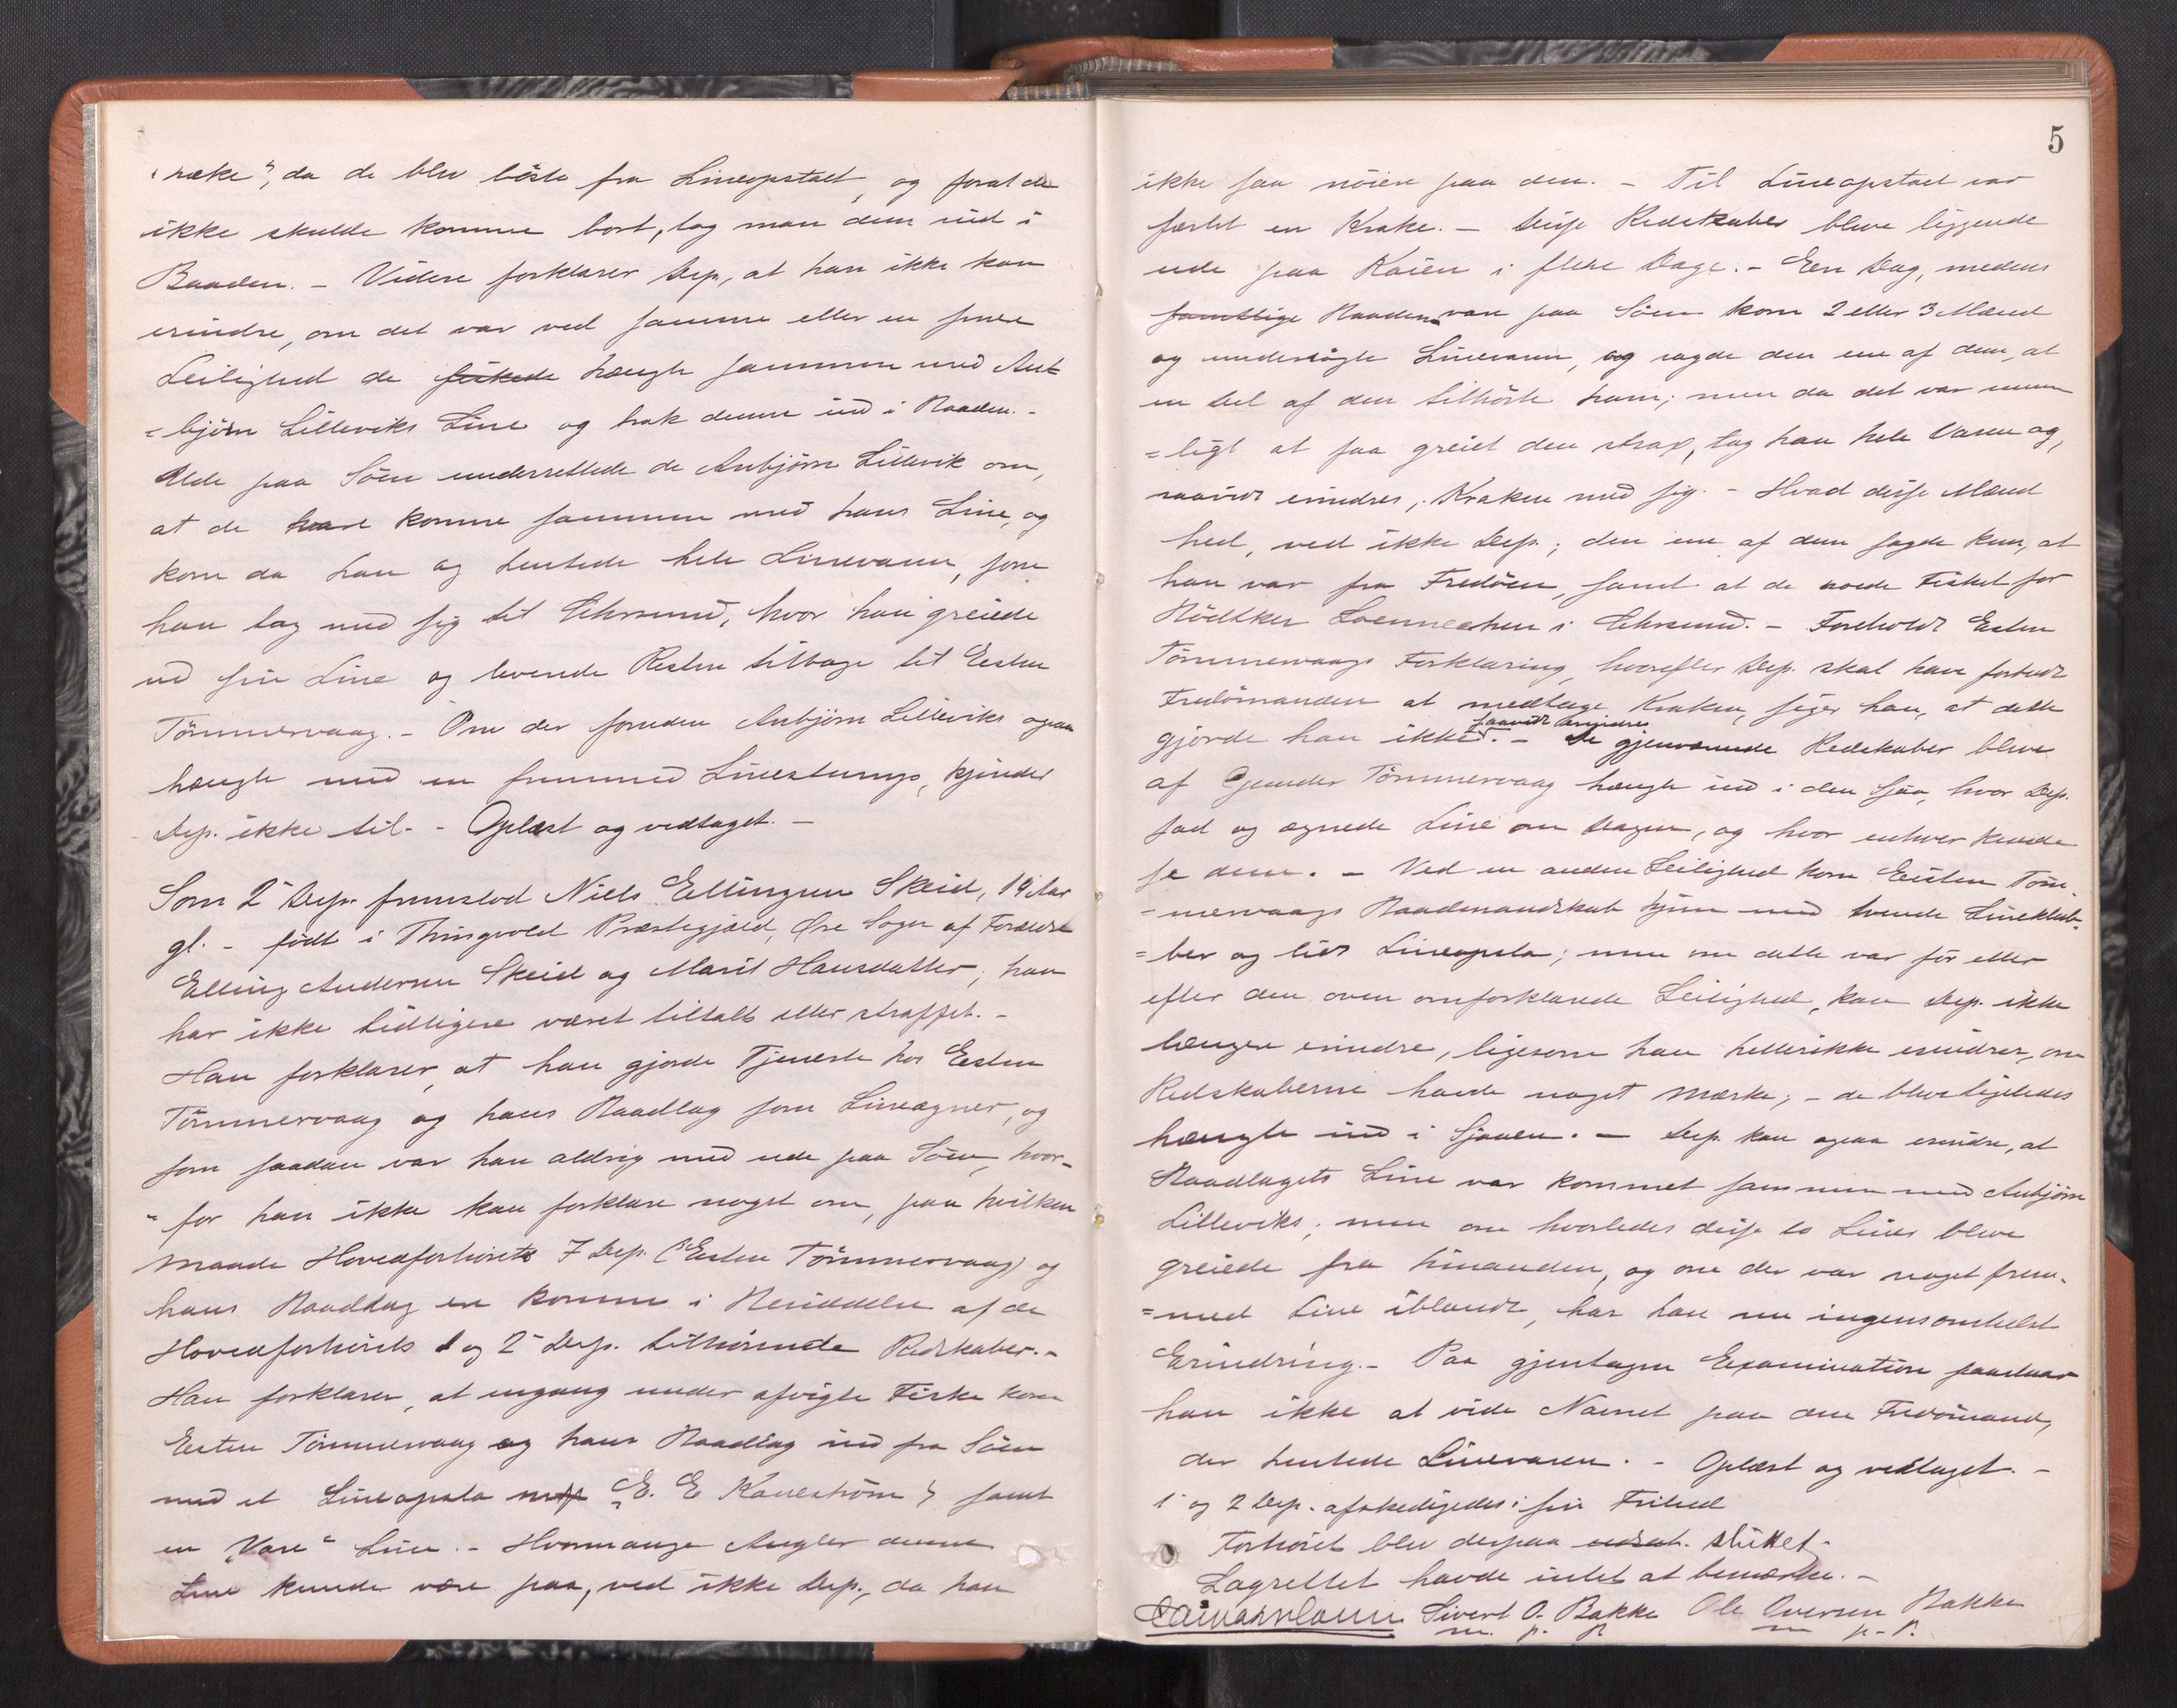 ræke", da de blev löste fra Lineopstaet, og forat de
ikke skulde komme bort, tog man dem ind i
Baaden. – Videre forklarer Dep, at han ikke kan
erindre, om det var ved samme eller en senere
Leilighed de fiskede hængte sammen med An-
=björn Lilleviks Line og trak denne ind i Baaden. –
Ude paa Söen underrettede de Anbjörn Lillevik om,
at de vare komne sammen med hans Line, og
kom da han og hentede hele Linevasen, som
han tog med sig til Chrsund, hvor han greiede
ud sin Line og leverede Resten tilbage til Esten
Tömmervaag. – Om der foruden Anbjörn Lilleviks ogsaa
hængte med en fremmed Linestump, kjender
Dep. ikke til. – Oplæst og vedtaget. –
Som 2 Dep. fremstod Niels Ellingsen Skeid, 19 Aar
gl. – födt i Thingvold Præstegjæld, Øre Sogn af Forældre
Elling Andersen Skeid og Marit Hansdatter; han
har ikke tidligere været tiltalt eller straffet. –
Han forklarer, at han gjorde Tjeneste hos Esten
Tömmervaag og hans Baadlag som Lineegner, og
som saadan var han aldrig med ude paa Söen, hvor-
=for han ikke kan forklare noget om, paa hvilken
Maade Hovedforhörets 7 Dep. (Esten Tömmervaag) og
hans Baadlag ere komne i Besiddelse af de
Hovedforhörets 1 og 2 Dep. tilhörende Redskaber. –
Han forklarer, at engang under afvigte Fiske kom
Esten Tömmervaag og hans Baadlag ind fra Söen
med et Lineopsta "E. E Kaneström" samt
en "Vase" Line. – Hvormange Angler denne
Line kunde være paa, ved ikke Dep., da han
5
ikke saa nöiere paa den. – Til Lineopstaet var
fæstet en Krake. – Disse Redskaber bleve liggende
ude paa Kaien i flere Dage. – Een Dag, medens
samtlige Baaden vare paa Söen kom 2 eller 3 Mænd
og undersögte Linevasen, og sagde den ene af dem, at
en Del af den tilhörte ham; men da det var umu-
=ligt at faa greiet den strax, tog han hele Vasen og,
saavidt erindres, Kraken med sig. – Hvad disse Mænd
hed, ved ikke Dep.; den ene af dem sagde kun, at
han var fra Fredöen, samt at de roede Fisket for
Bödtker Loennechen i Chrsund. – Foreholdt Esten
Tömmervaags Forklaring, hvorefter Dep. skal have forbudt
Fredömanden at medtage Kraken, siger han, at dette
gjorde han ikke saavidt erindres. – De gjenværende Redskaber bleve
af Gunder Tömmervaag hængte ind i den Sjaa, hvor Dep.
sad og egnede Line om Dagen, og hvor enhver kunde
se dem. – Ved en anden Leilighed kom Esten Töm-
=mervaags Baadmandskab hjem med tvende Lineklub-
=ber og lidt Lineopsta; men om dette var för eller
efter den oven omforklarede Leilighed, kan Dep. ikke
længere erindre, ligesom han hellerikke erindrer, om
Redskaberne havde noget Mærke; – de bleve ligeledes
hængte ind i Sjaaen. – Dep. kan ogsaa erindre, at
Baadlagets Line var kommet sammen med Anbjörn
Lilleviks; men om hvorledes disse to Liner bleve
greiede fra hinanden, og om der var noget frem-
=med Line iblandt, har han nu ingensomhelst
Erindring. – Paa gjentagen Examination paastaar
han ikke at vide Navnet paa den Fredömand,
der hentede Linevasen. – Oplæst og vedtaget. –
1 og 2 Dep. afskedigedes i sin Frihed
Forhöret blev derpaa udsat. sluttet. –
Lagrettet havde intet at bemærke. –
Sivert O. Bakke Ole Iversen Bakke
m. p. P. m p. P.